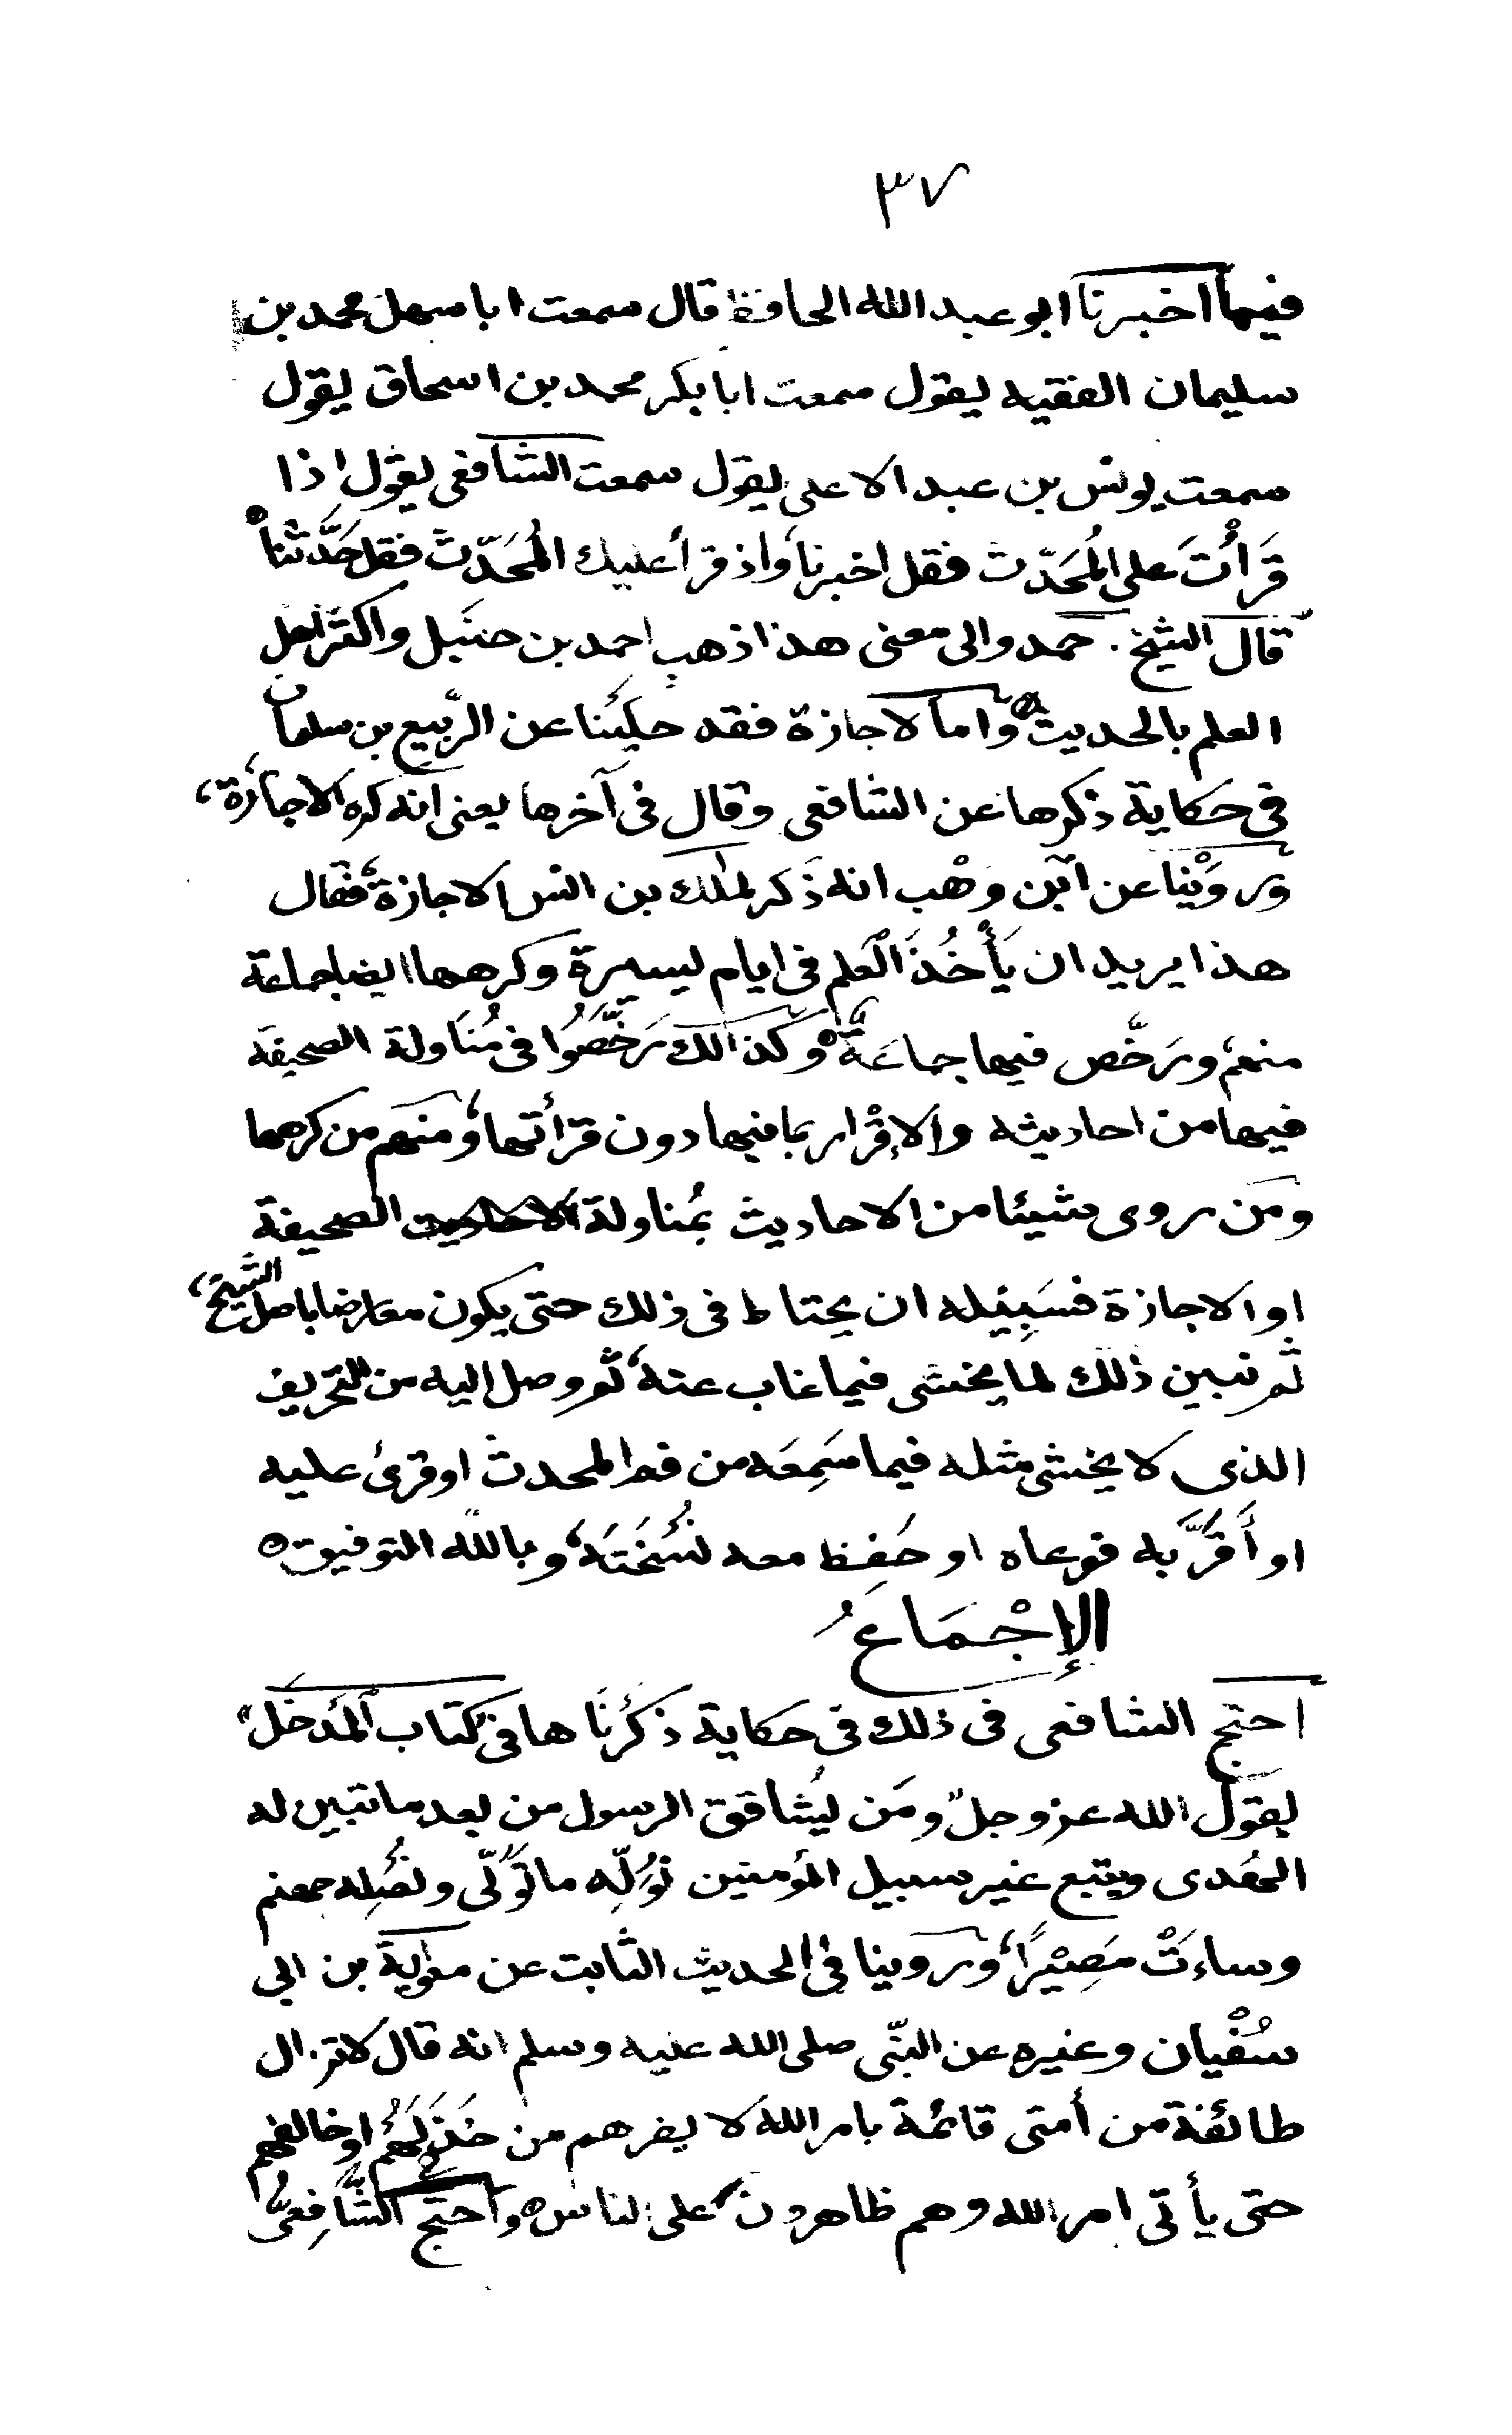 ٣٧
فيما اخبرنا ابو عبد الله الحافظ قال سمعت ابا سهل محمد بن
سليمان الفقيه يقول سمعت ابا بكر محمد بن اسحاق يقول
سمعت يونس بن عبد الاعلى يقول سمعت الشافعى يقول اذا
قَرَأْتَ على المُحَدّث فقل اخبرنا، واذ قرأ عليك المُحَدّث فقل حَدَّثنا
قال الشيخ . حمد والى معنى هذا ذهب احمد بن حنبل واكثر اهل
العلم بالحديث واما لاجازة فقد حكينا عن الرّبيع بن سلمان
فى حكاية ذكرها عن الشافعى وقال فى آخرها يعنى انه كره الاجازة،
ورَوَيْنا عن ابن وَهْب انه ذَكر لملك بن انس الاجازة، فقال
هذا يريد ان يَأْخُذَ الْعلم فى ايام يسيرة وكرهها ايضا جماعة
منهم، ورَخَّص فيها جماعَةٌ وكذالك رَخَّصُوا فى مُنَاولة الصحيفة
فيها من احاديثه والإقْرار بما فيها دون قرأتها، ومنهم من كرهها
ومَن روى شيئا من الاحاديث بمُناولة الصحيفة
او الاجازة فسَبِيْله ان يحتاط فى ذلك حتى يكون معارضا باصل الشيخ،
ثم نبين ذلك لما يخشى فيما غاب عنه، ثم وصل اليه من التحريف
الذى لا يخشى مثله فيما سَمِعَه من فم المحدث او قرئ عليه
او أَقَرَّ به فوعاه او حَفِظ معه نُسْخَتَهُ، وبالله التوفيق ه
الإِجْمَاعُ
احتج الشافعى فى ذلك فى حكاية ذَكَرْنَا ها فى "كتاب المَدخَل"
بقول الله عز وجل "ومَن يُشاقق الرسول من بعد ما تبين له
الهُدى ويتبع غير سبيل المؤمنين نُوَلِّه ما تَوَلّى ونُصْلِه جهنم
وساءَتْ مَصِيْرًا، وروينا فى الحديث الثابت عن معوية بن ابى
سُفْيان وغيره عن النبّى صلى الله عليه وسلم انه قال لا تزال
طائفة من أمتى قائمة بامر الله لا يضرهم من خَذَلَهُمْ او خالفهم
حتى يأتى امر الله وهم ظاهرون على الناس ه واحتج الشَّافِعىُّ